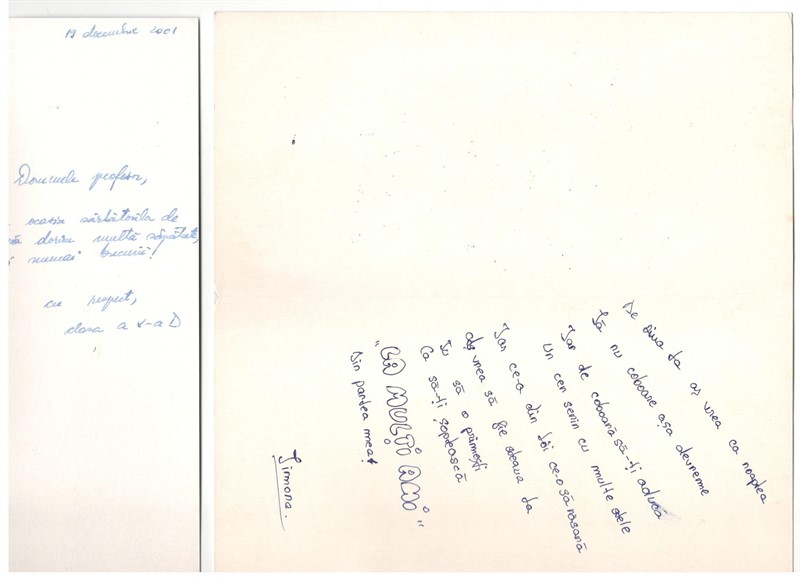 19 decembrie 2001
Domnule profesor,
ocazia sărbătorilor de
vă dorim multă sănătate,
numai bucurii!
cu respect,
clasa a D
De ziua ta aș vrea ca noaptea
Să nu coboare așa devreme
Iar de coboară să-ți aducă
Un cer senin cu multe stele
Iar ce-a din tâi ce-o să răsară
Aș vrea să fie steaua ta
Tu să o primești
Ca să-ți șoptească
"LA MULȚI ANI"
Din partea mea!
Simona.